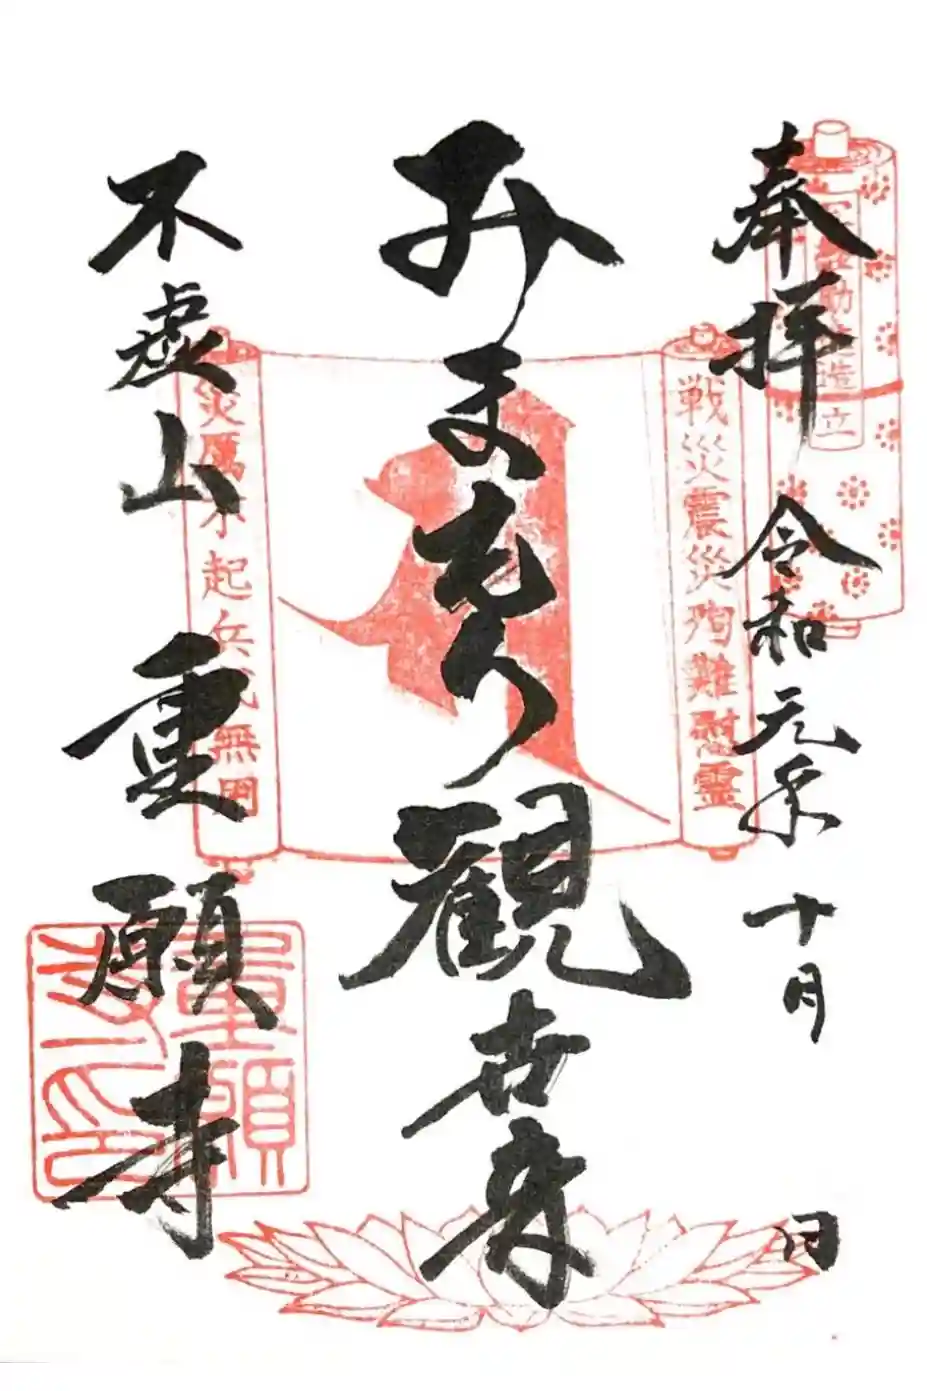 奉拝 令和元年 十月 日
写経勧進造立
戦災震災殉難慰霊
みまもり観世音
災厲不起兵戈無用
不虚山 重願寺
重願寺印